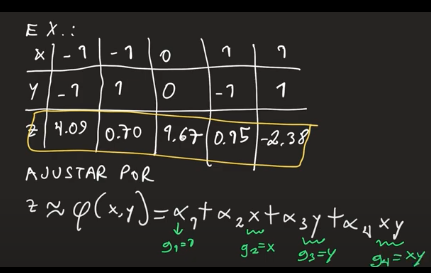 EX.:
x | -1 | -1 | 0 | 1 | 1
y | -1 | 1 | 0 | -1 | 1
z | 4.09 | 0.70 | 1.67 | 0.15 | -2.38
AJUSTAR POR
z ≈ φ(x,y) = α₁ + α₂x + α₃y + α₄xy
g₁=1 g₂=x g₃=y g₄=xy